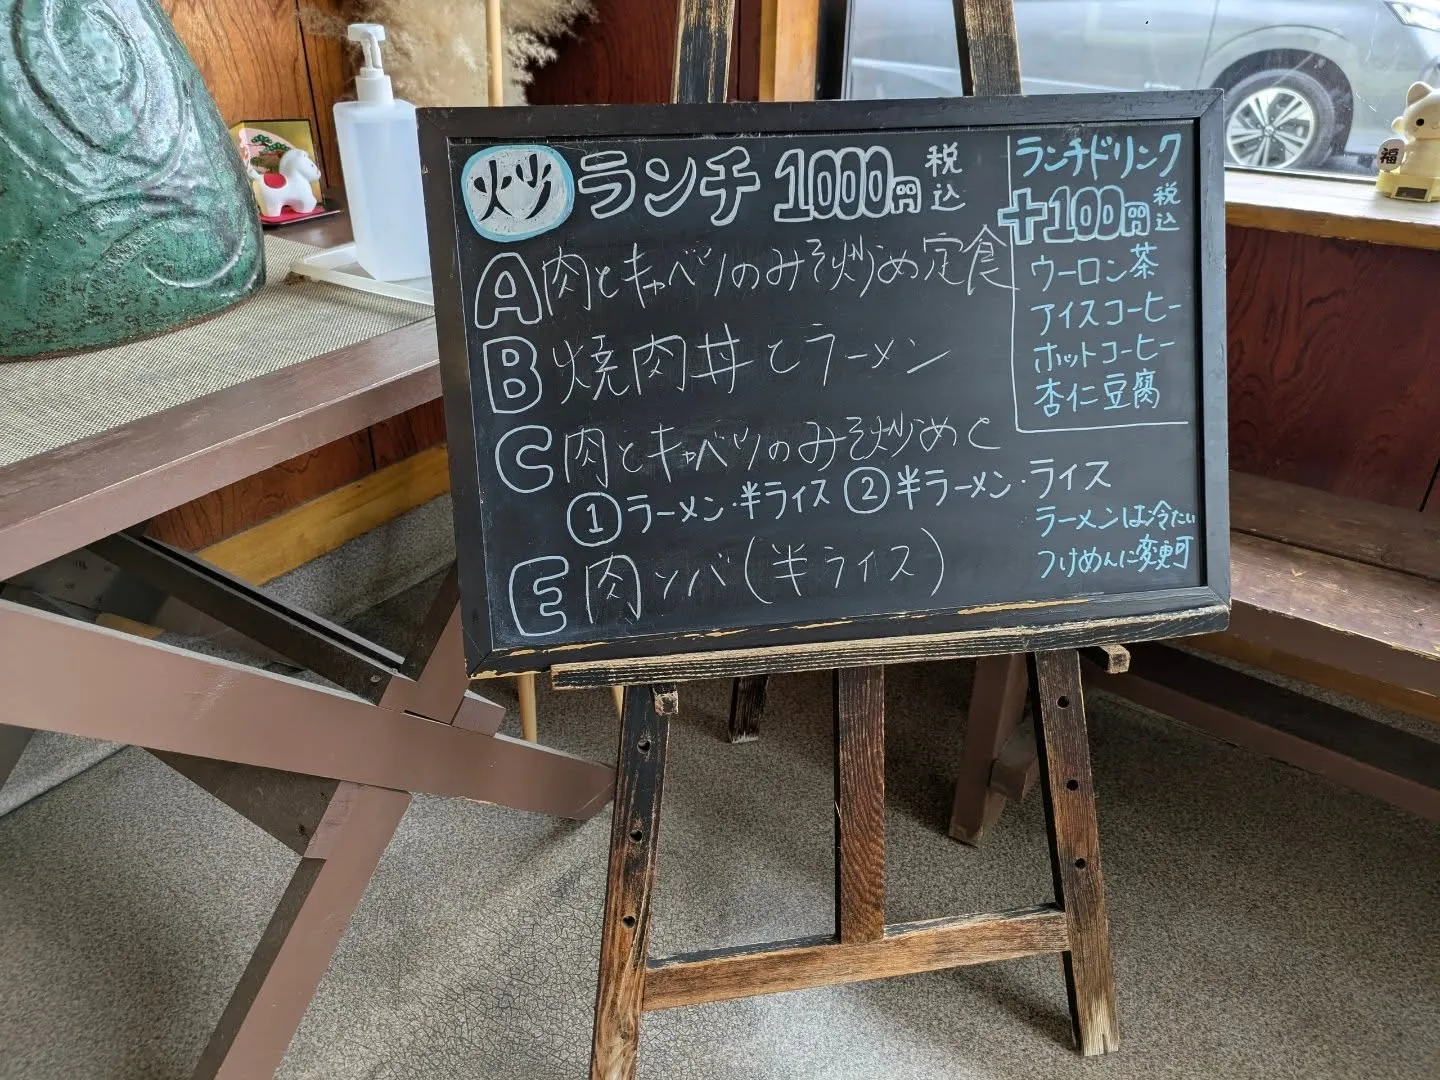 炒 ランチ 1000円 税込
A 肉とキャベツのみそ炒め定食
B 焼肉丼とラーメン
C 肉とキャベツのみそ炒めと
①ラーメン・半ライス ②半ラーメン・ライス
E 肉ソバ(半ライス)
ランチドリンク
+100円 税込
ウーロン茶
アイスコーヒー
ホットコーヒー
杏仁豆腐
ラーメンは冷たい
つけめんに変更可
福